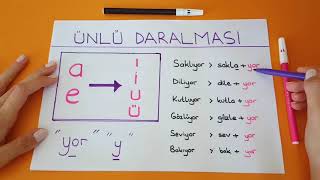 ÜNLÜ DARALMASI
a → ı
e i
u
ü
"yor" "y"
Saklıyor > sakla + yor
Diliyor > dile + yor
Kutluyor > kutla + yor
Gözlüyor > gözle + yor
Seviyor > sev + yor
Bakıyor > bak + yor